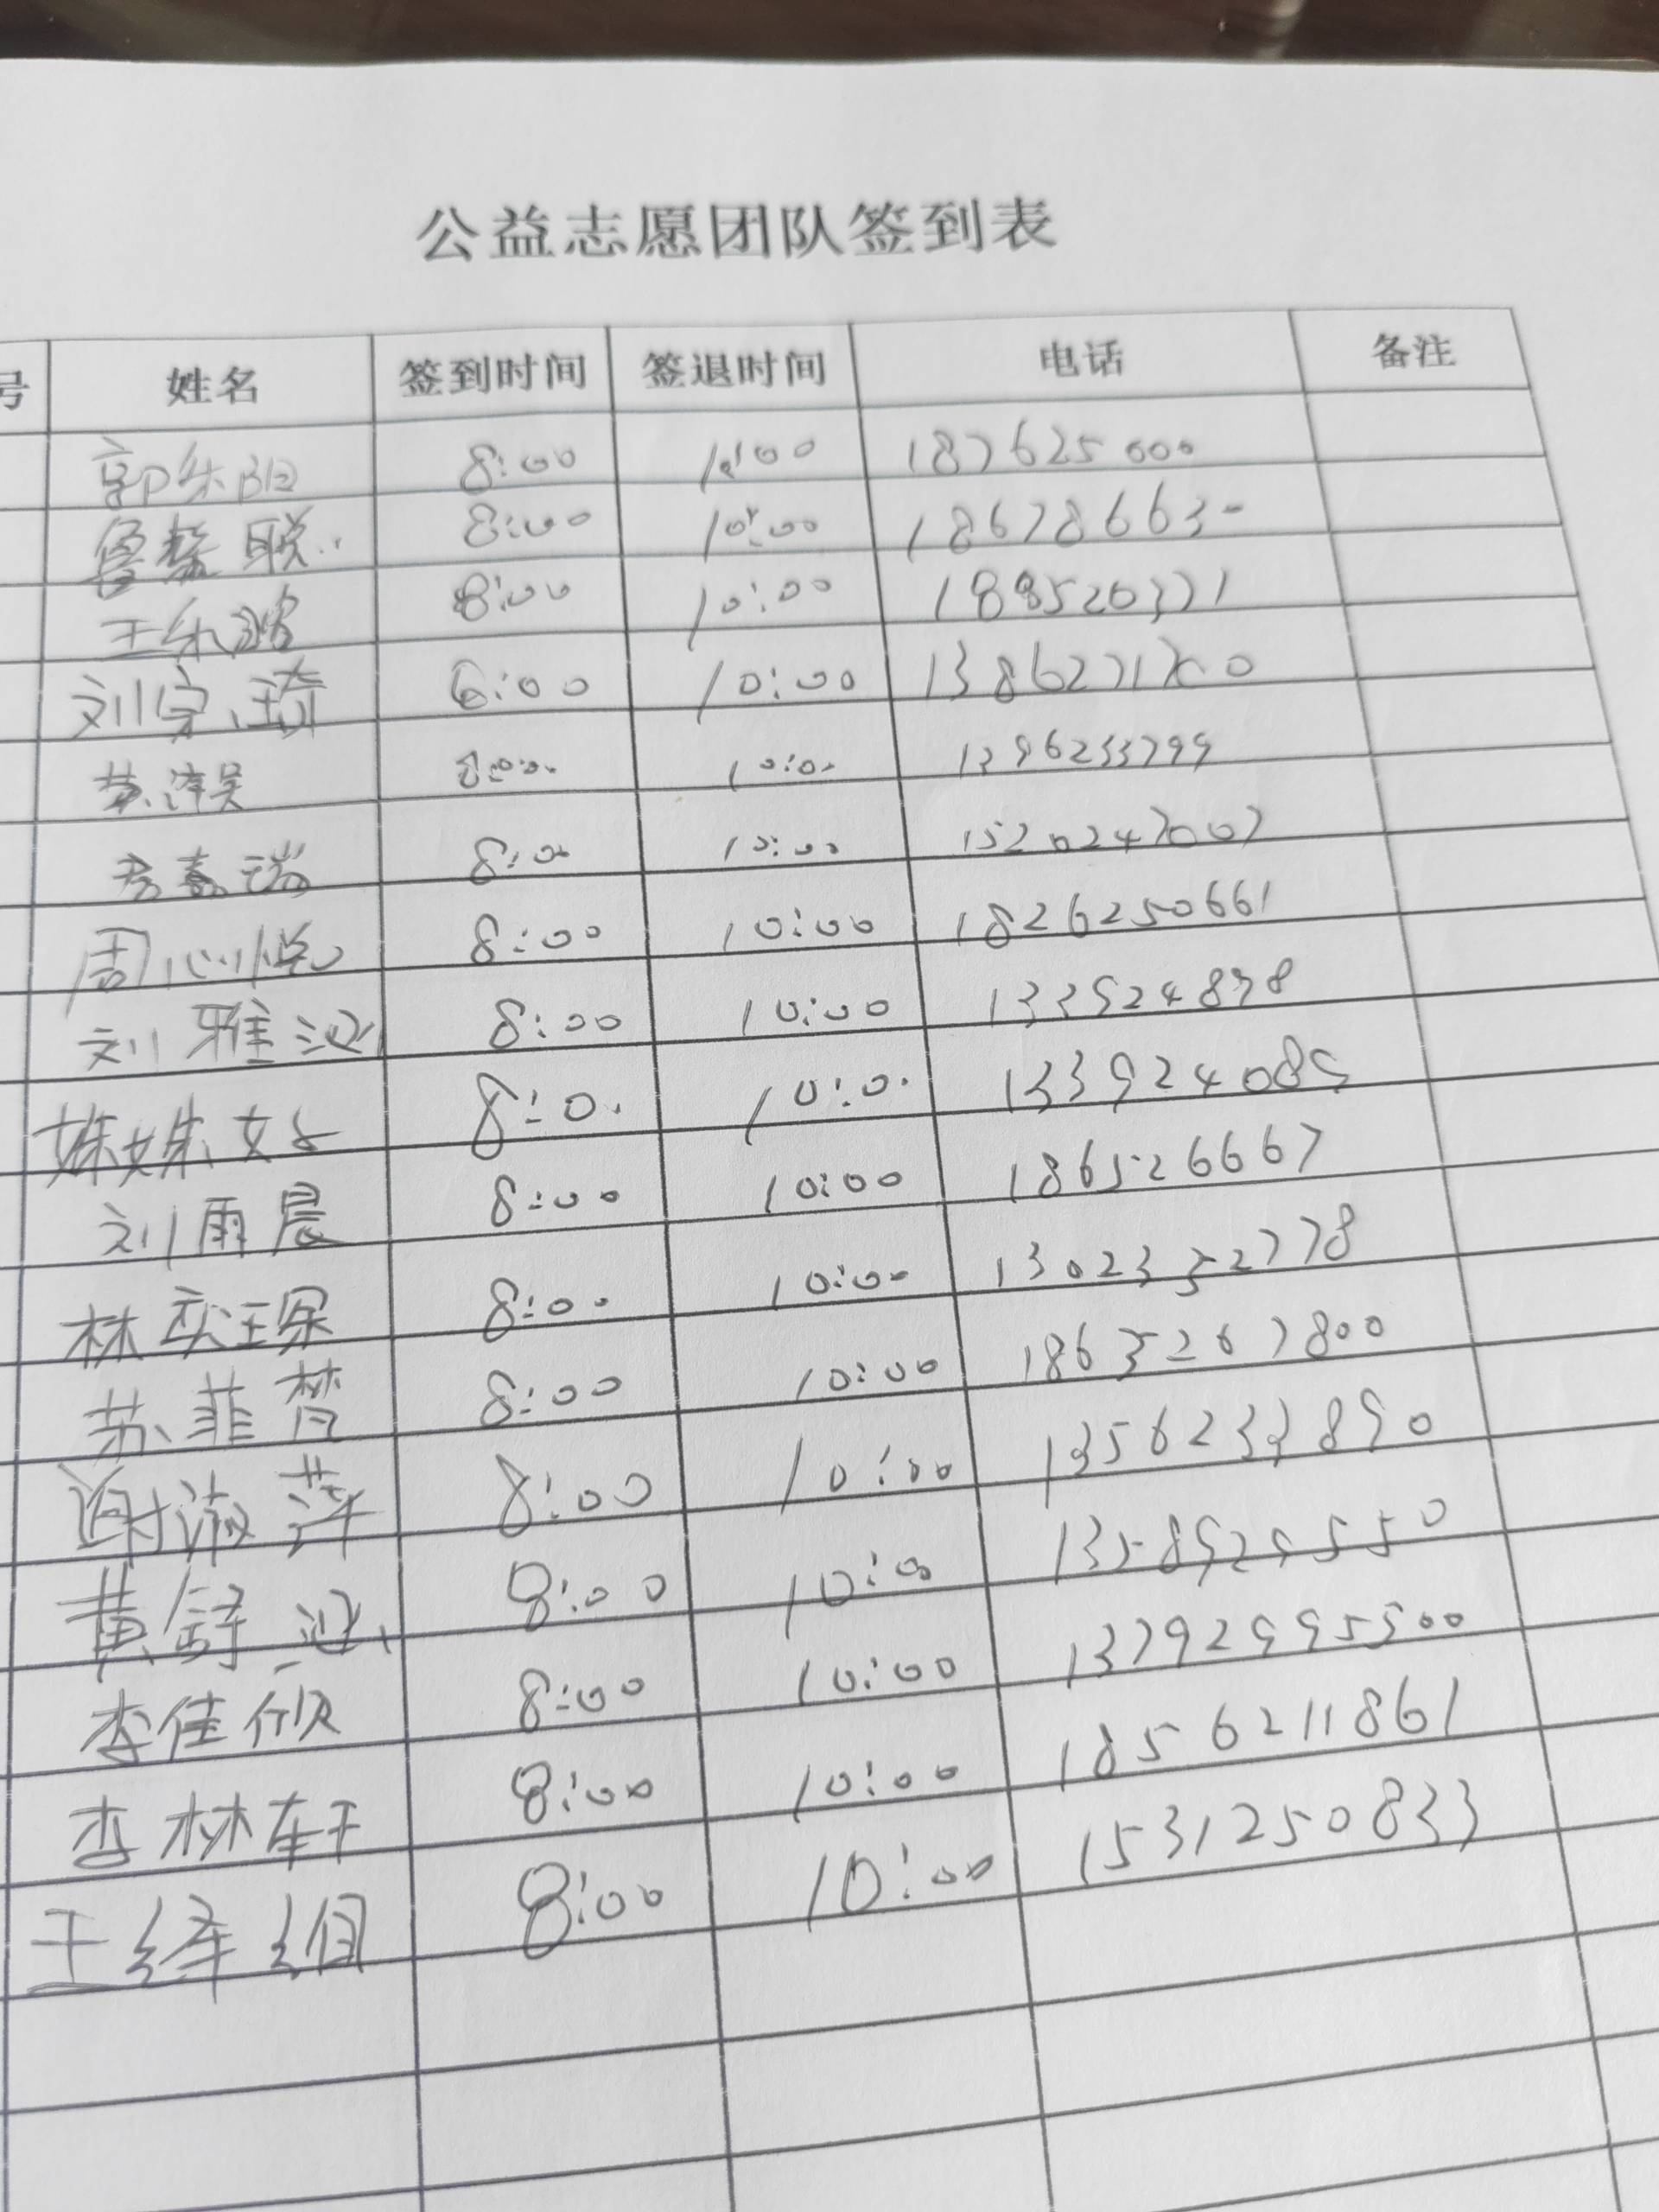 公益志愿团队签到表
号 姓名 签到时间 签退时间 电话 备注
8:00 10:00 187625000
鲁 8:00 10:00 18678663
王乐 8:00 10:00 188520371
刘宗琦 6:00 10:00
苏泽昊 1396233799
嘉瑞 10:00 1520247007
周心悦 8:00 10:00 1826250661
刘雅汐 8:00 10:00 133524898
8:0. 10:0. 133924089
刘雨晨 8:00 10:00 186526667
林奕琛 8:00 10:00 1302352778
苏菲梦 8:00 10:00 18635267800
谢淑萍 8:00 10:00 1356233890
黄舒 8:00 10:00 1358929550
李佳欣 8:00 10:00 13792995500
李林轩 8:00 10:00 1856211861
王绎绢 8:00 10:00 1531250833